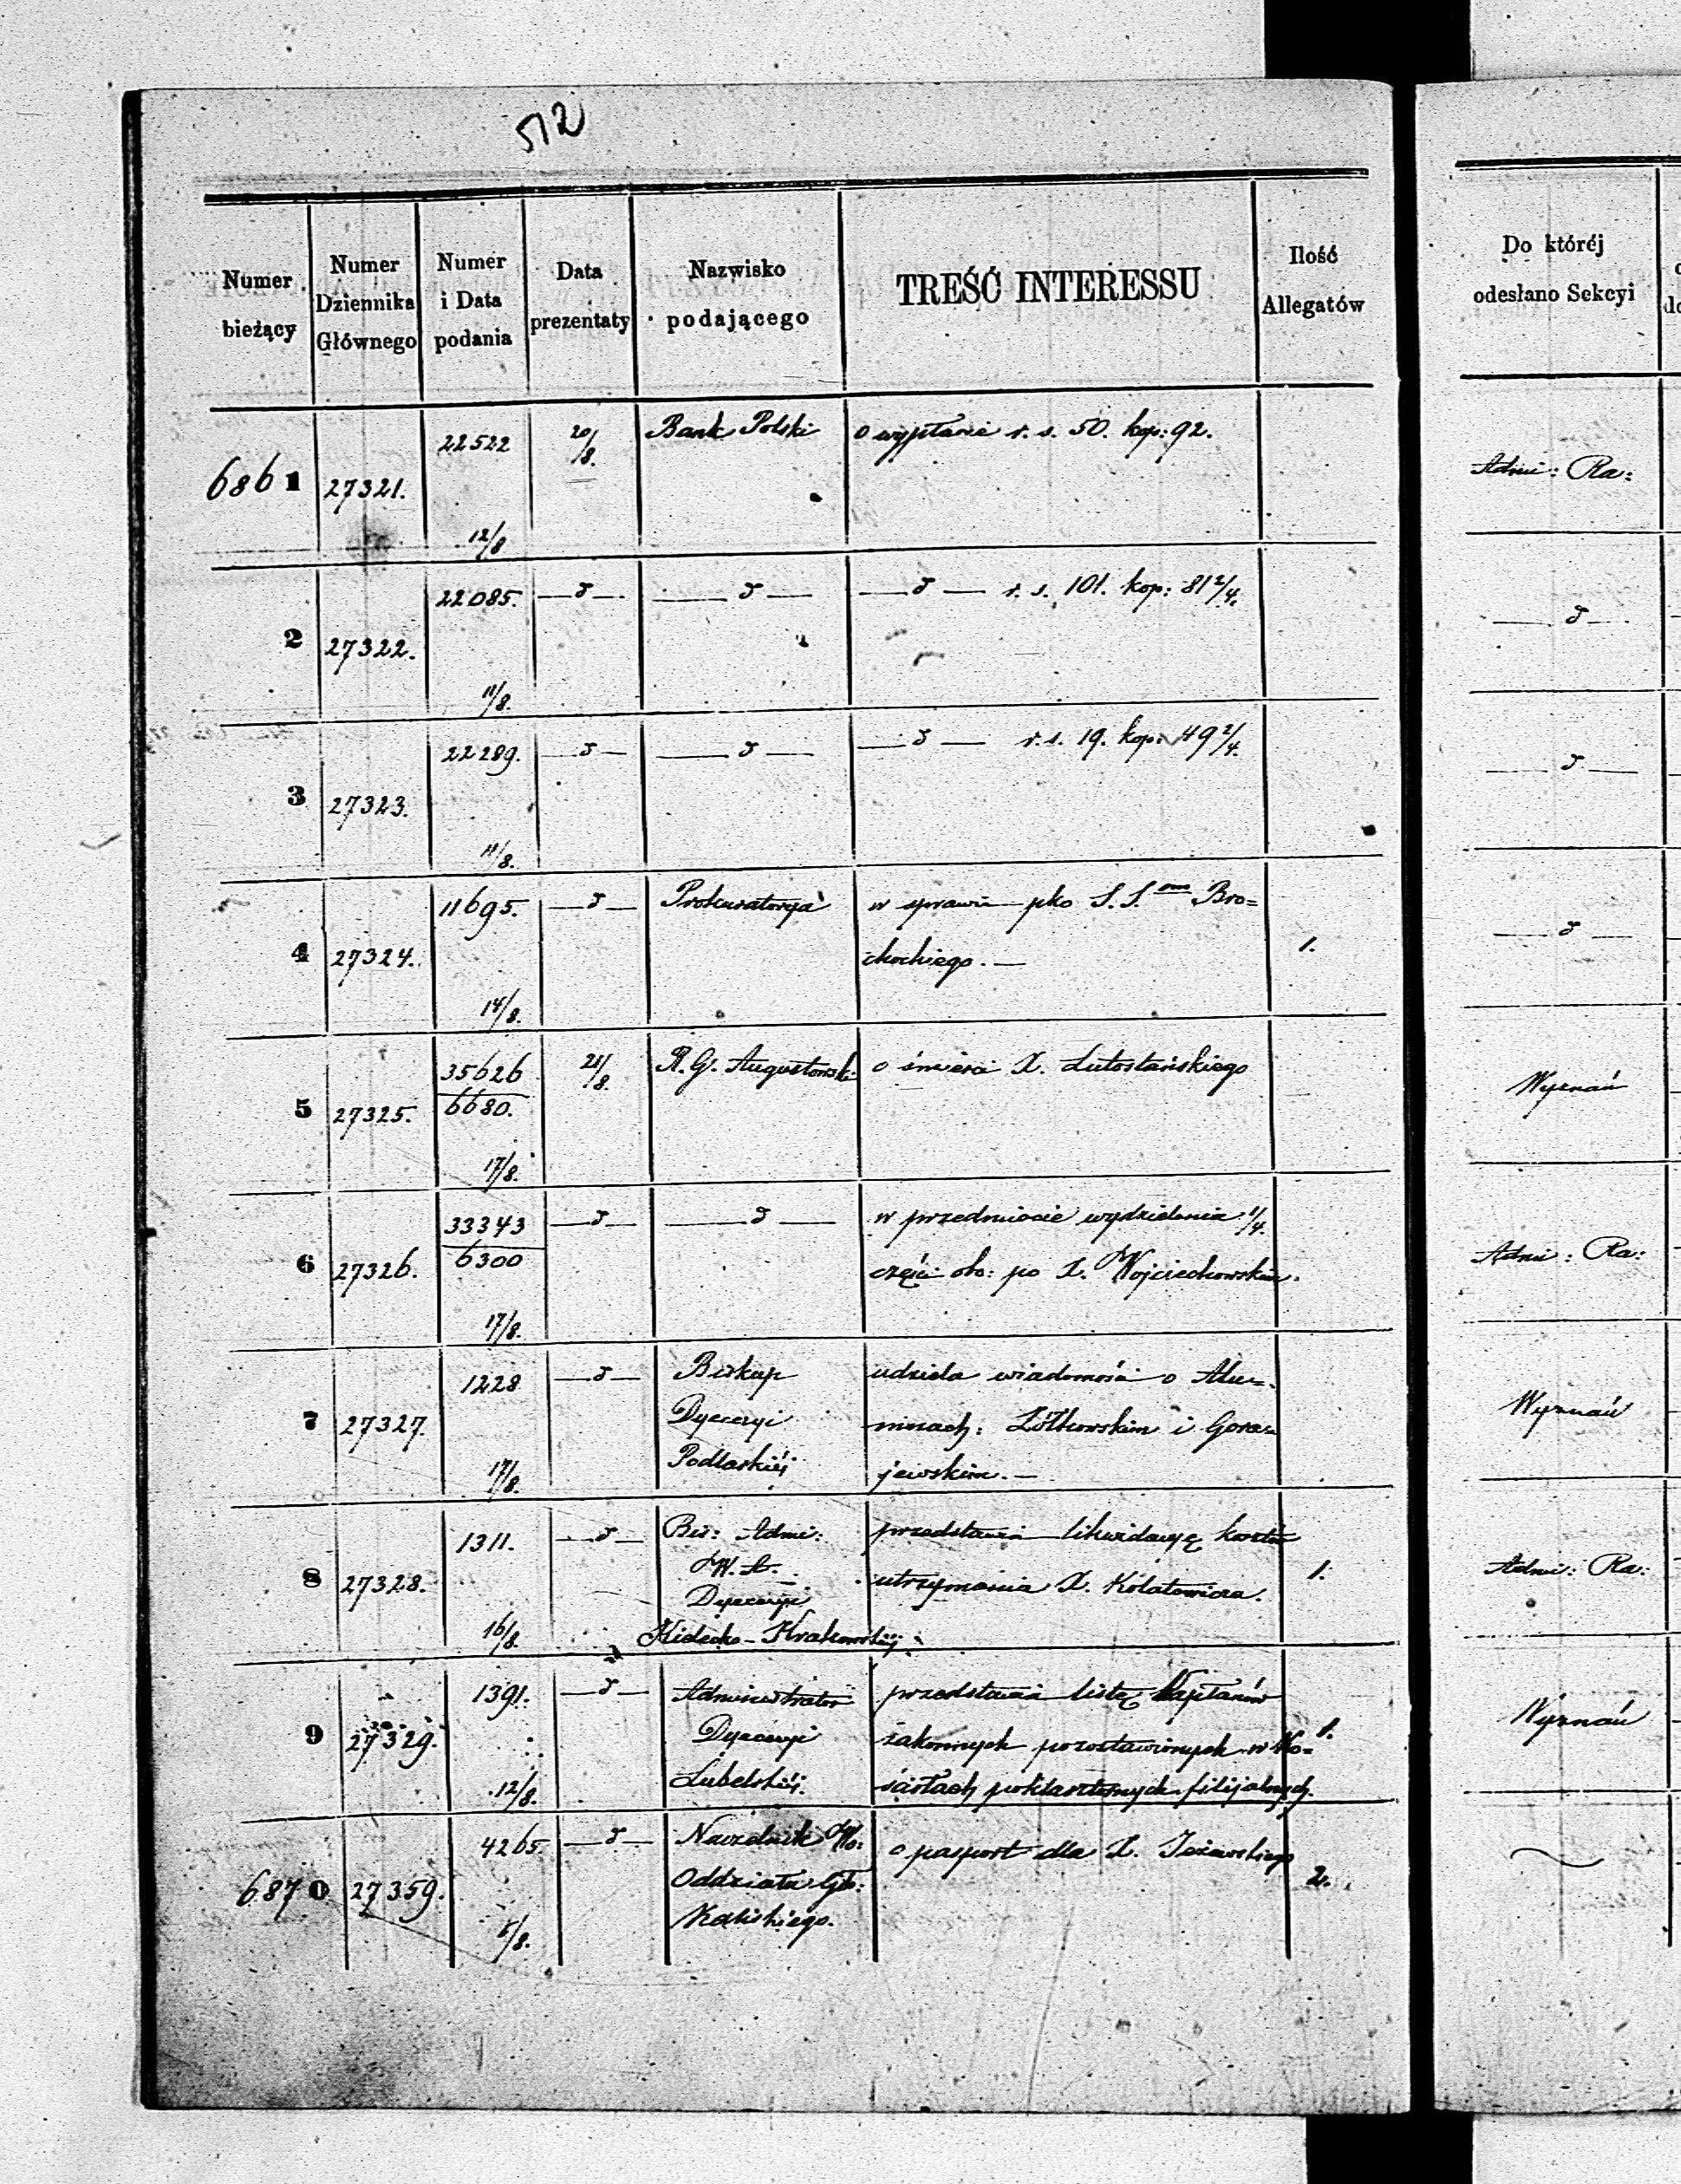 512
Numer bieżący | Numer Dziennika Głównego | Numer i Data podania | Data prezentaty | Nazwisko podającego | TREŚĆ INTERESSU | Ilość Allegatów | Do któréj odesłano Sekcyi
6861 | 27321. | 22522 12/8 | 20/8. | Bank Polski | o wypłanie r. s. 50. kop: 92. | | Admi: Ra:
2 | 27322. | 22085. 11/8. | —d— | —d— | —d— r. s. 101. kop: 81 2/4. | | —d—
3 | 27323. | 22289. 11/8. | —d— | —d— | —d— r. s. 19. kop: 49 2/4. | | —d—
4 | 27324. | 11695. 14/8. | —d— | Prokuratorya | w sprawie pko S. S.om Bro=
chockiego.— | 1. | —d—
5 | 27325. | 35626/6680. 17/8. | 21/8. | R. G. Augustowski | o śmierci X. Lutostańskiego | | Wyznań
6 | 27326. | 33343/6300 17/8. | —d— | —d— | w przedmiocie wydzielenia 1/4.
części po X. Wojciechowskim. | | Admi: Ra:
7 | 27327. | 1228 17/8. | —d— | Biskup
Dyecezyi
Podlaskiéj | udziela wiadomość o Alu=
mnach: Żółtkowskim i Gora=
jewskim.— | | Wyznań
8 | 27328. | 1311. 16/8. | —d— | Bis: Admi:
Dyecezyi
Kielecko-Krakowskiéj | przedstawia likwidacyę kosztów
utrzymania X. Kołatowicza. | 1. | Admi: Ra:
9 | 27329. | 1391. 12/8. | —d— | Administrator
Dyecezyi
Lubelskiéj. | przedstawia listę Kapłanów
zakonnych pozostawionych w Ko=
ściołach poklasztornych filijalnych. | 1. | Wyznań
6870 | 27359. | 4265. 5/8. | —d— | Naczelnik Wo:
Oddziału Gł:
Kaliskiego. | o pasport dla X. Jeżewskiego | 2.